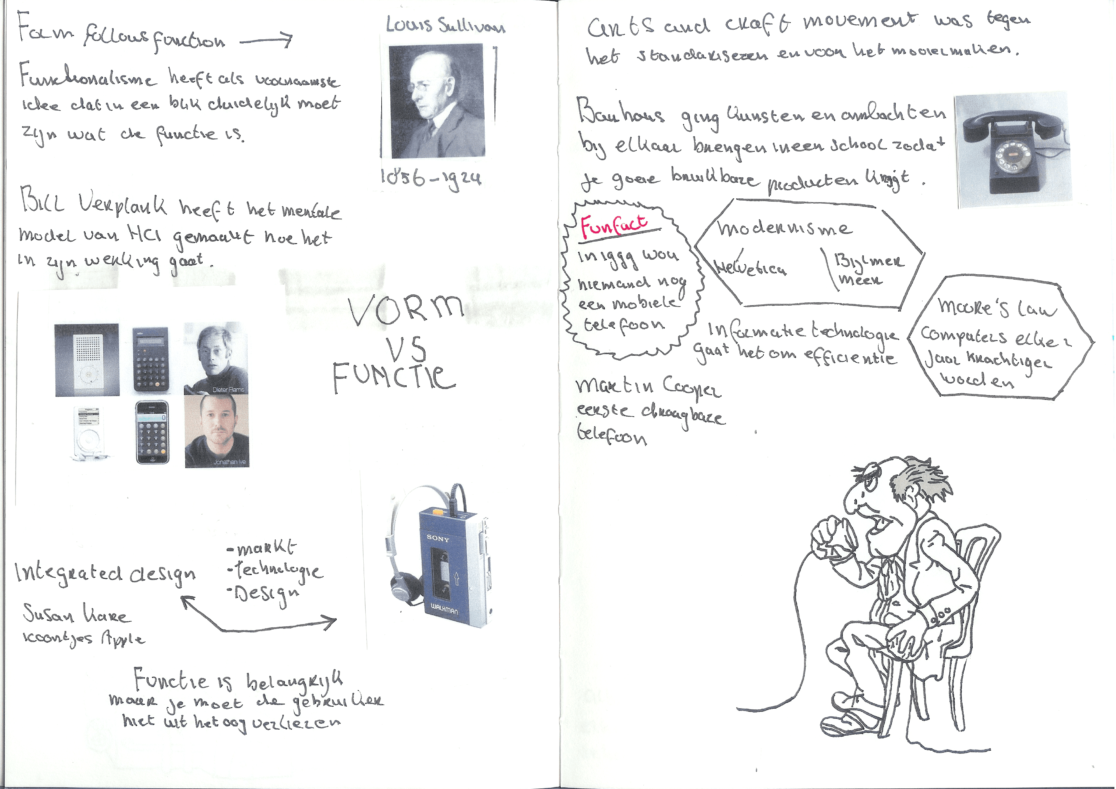 Form follows function
Louis Sullivan
Functionalisme heeft als voornaamste
idee dat in een blik duidelijk moet
zijn wat de functie is.
1856-1924
Bill Verplank heeft het mentale
model van HCI gemaakt hoe het
in zijn werking gaat.
VORM
VS
FUNCTIE
Dieter Rams
Jonathan Ive
SONY
WALKMAN
Integrated design
-markt
-technologie
-Design
Susan Kare
icoontjes Apple
Functie is belangrijk
maar je moet de gebruiker
niet uit het oog verliezen
arts and craft movement was tegen
het standariseren en voor het mooier maken.
Bauhaus ging kunsten en ambachten
bij elkaar brengen in een school zodat
je goeie bruikbare producten krijgt.
Funfact
in 1999 wou
niemand nog
een mobiele
telefoon
modernisme
Helvetica
Bijlmer
meer
Informatie technologie
gaat het om efficientie
Moore's law
Computers elke
jaar krachtiger
worden
Martin Cooper
eerste draagbare
telefoon